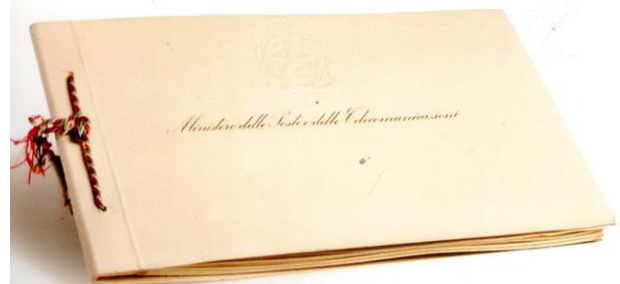 Ministero delle Poste e delle Telecomunicazioni